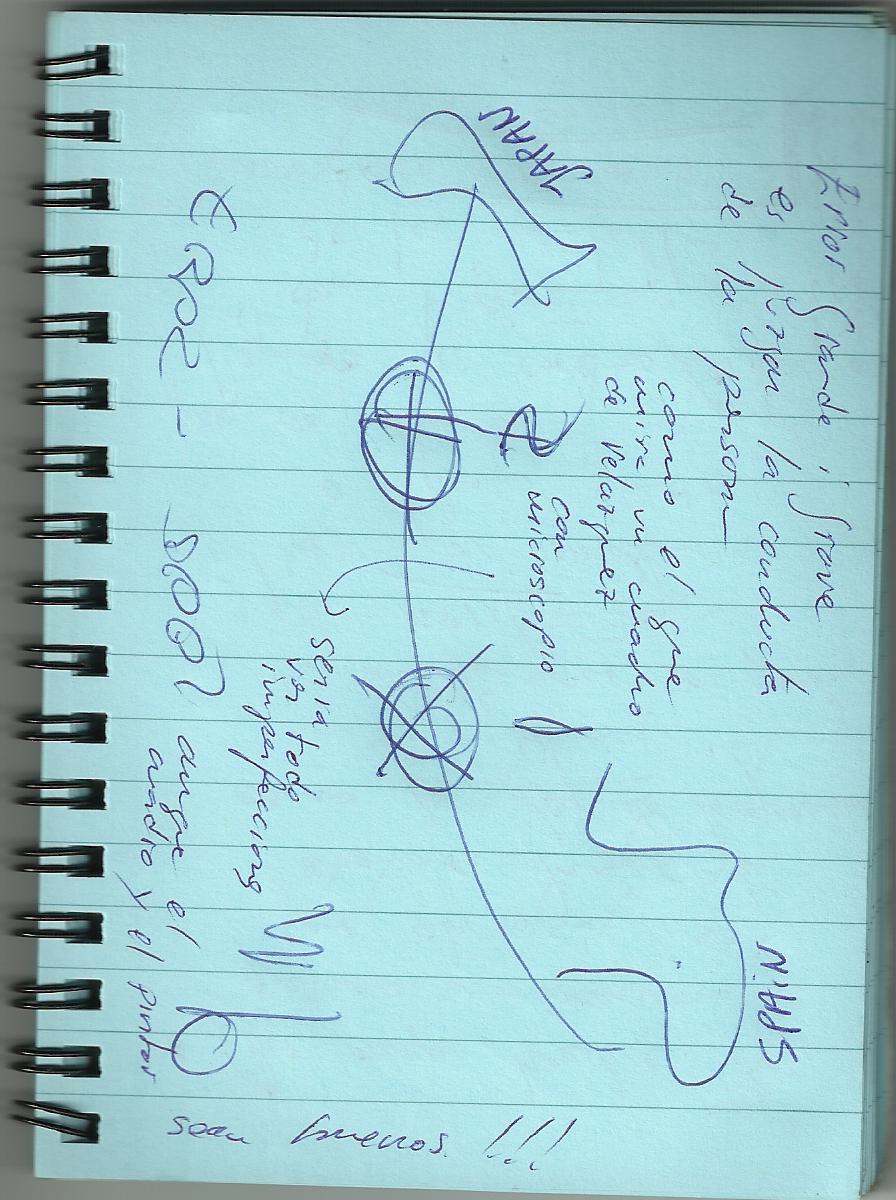 Error Grande, Grave
es juzgar la conducta
de la persona
como el que
mira un cuadro
de Velazquez
con
microscopio
JAPAN
SPAIN
seria
ver todo
imperfecciones
aunque el
cuadro y el pintor
sean buenos !!!